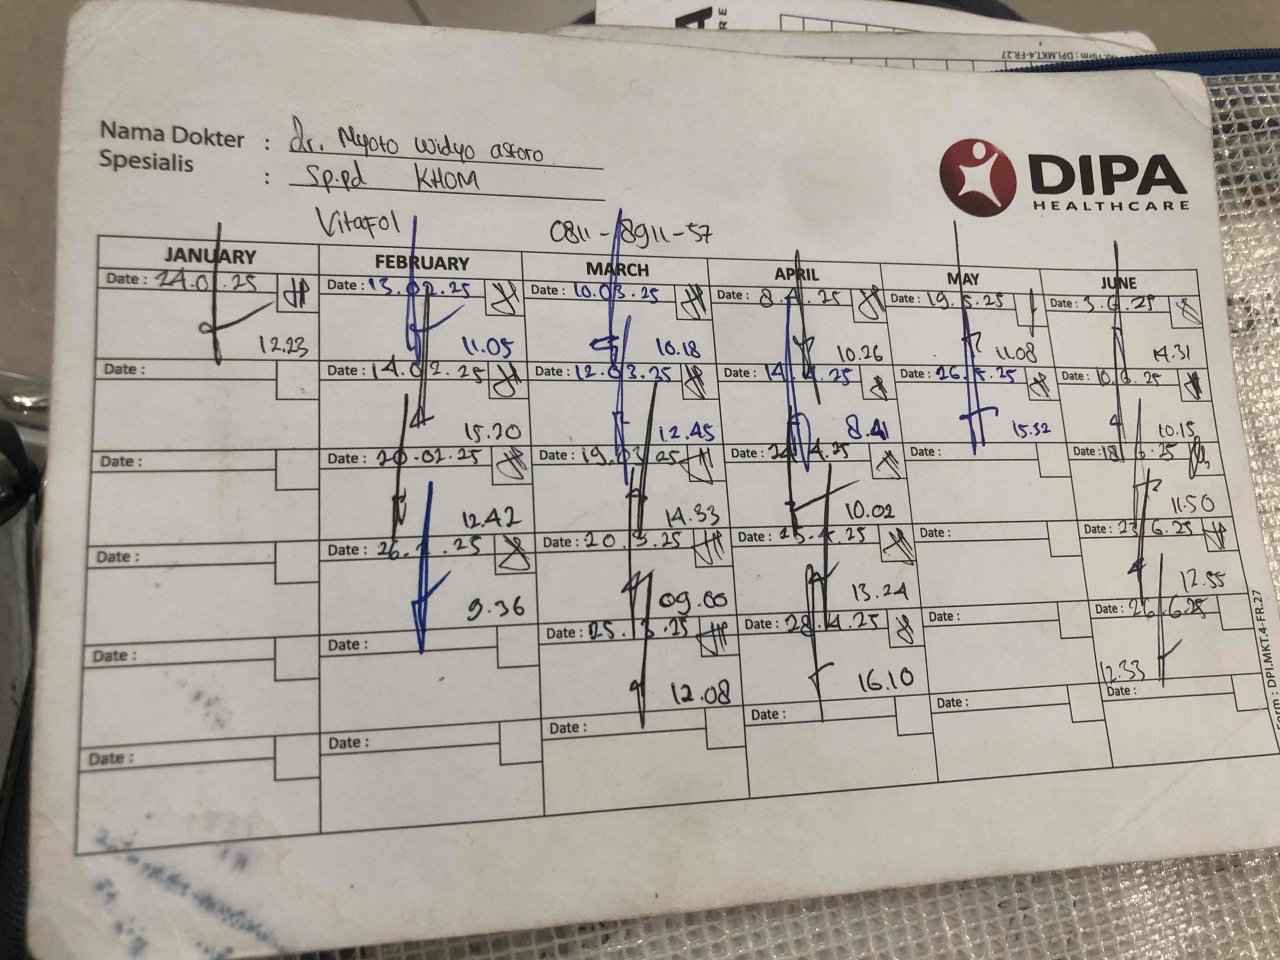 Nama Dokter : dr. Nyoto Widyo Astoro
Spesialis : Sp.pd KHOM
DIPA
HEALTHCARE
Vitafol 0811-8911-57
JANUARY FEBRUARY MARCH APRIL MAY JUNE
Date : 24.01.25 Date : 13.02.25 Date : 10.03.25 Date : 8.4.25 Date : 19.5.25 Date : 3.6.25
12.23 11.05 10.18 10.26 11.08 14.31
Date : Date : 14.02.25 Date : 12.03.25 Date : 14.4.25 Date : 26.5.25 Date : 10.6.25
15.20 12.45 8.41 15.32 10.15
Date : Date : 20.02.25 Date : 19.03.25 Date : 24.4.25 Date : Date : 18.6.25
12.42 14.33 10.02 11.50
Date : Date : 26.2.25 Date : 20.3.25 Date : 25.4.25 Date : Date : 23.6.25
9.36 09.00 13.24 12.55
Date : Date : Date : 25.3.25 Date : 28.4.25 Date : Date : 26.6.25
12.08 16.10 12.33
Date : Date : Date : Date : Date : Date :
DPI.MKT.4-FR.27